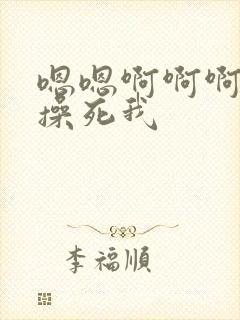 嗯嗯啊啊啊
操死我
李福順